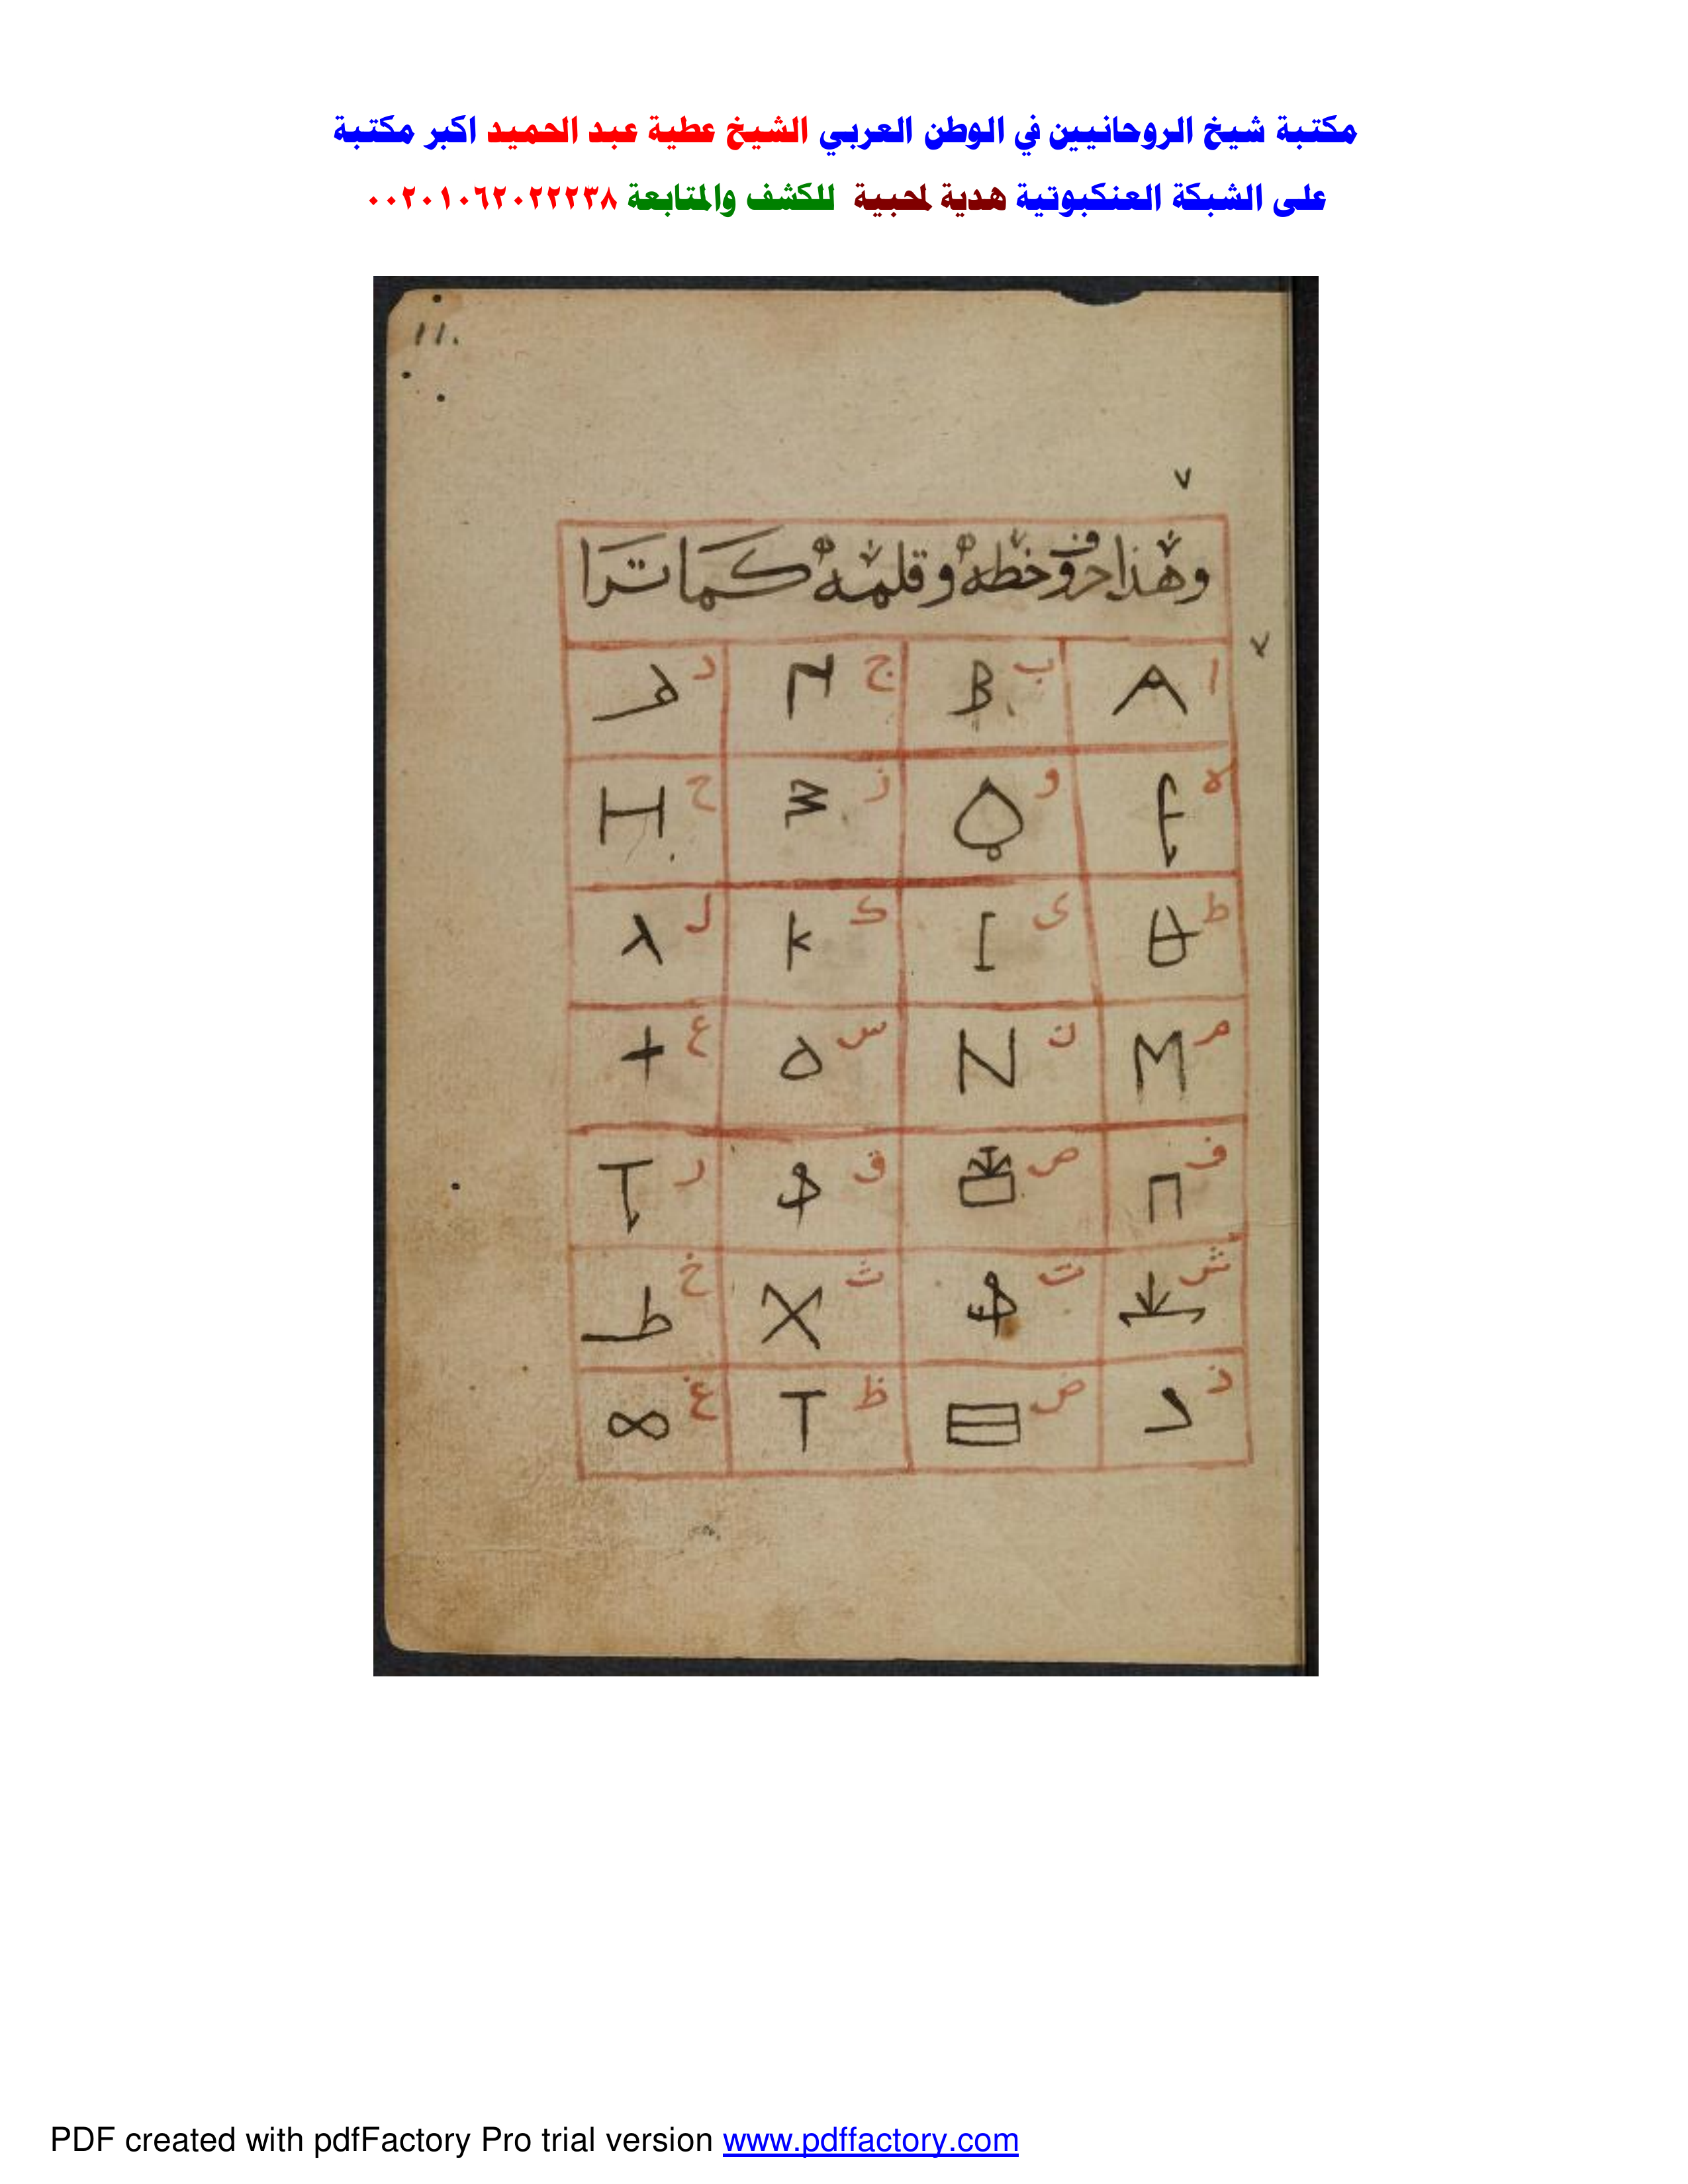 مكتبة شيخ الروحانيين في الوطن العربي الشيخ عطية عبد الحميد اكبر مكتبة
على الشبكة العنكبوتية هدية لمحبيه للكشف والمتابعة ٠٠٢٠١٠٦٢٠٢٢٢٣٨
11.
٧
وهذا حروف خطه وقلمه كما ترا
٧
ا A ب B ج د
ه و ز ح H
ط ى I ك K ل λ
م M ن N س ع +
ف Π ص ق ر
ش ت ث X خ
ذ ض ظ T غ ∞
PDF created with pdfFactory Pro trial version www.pdffactory.com